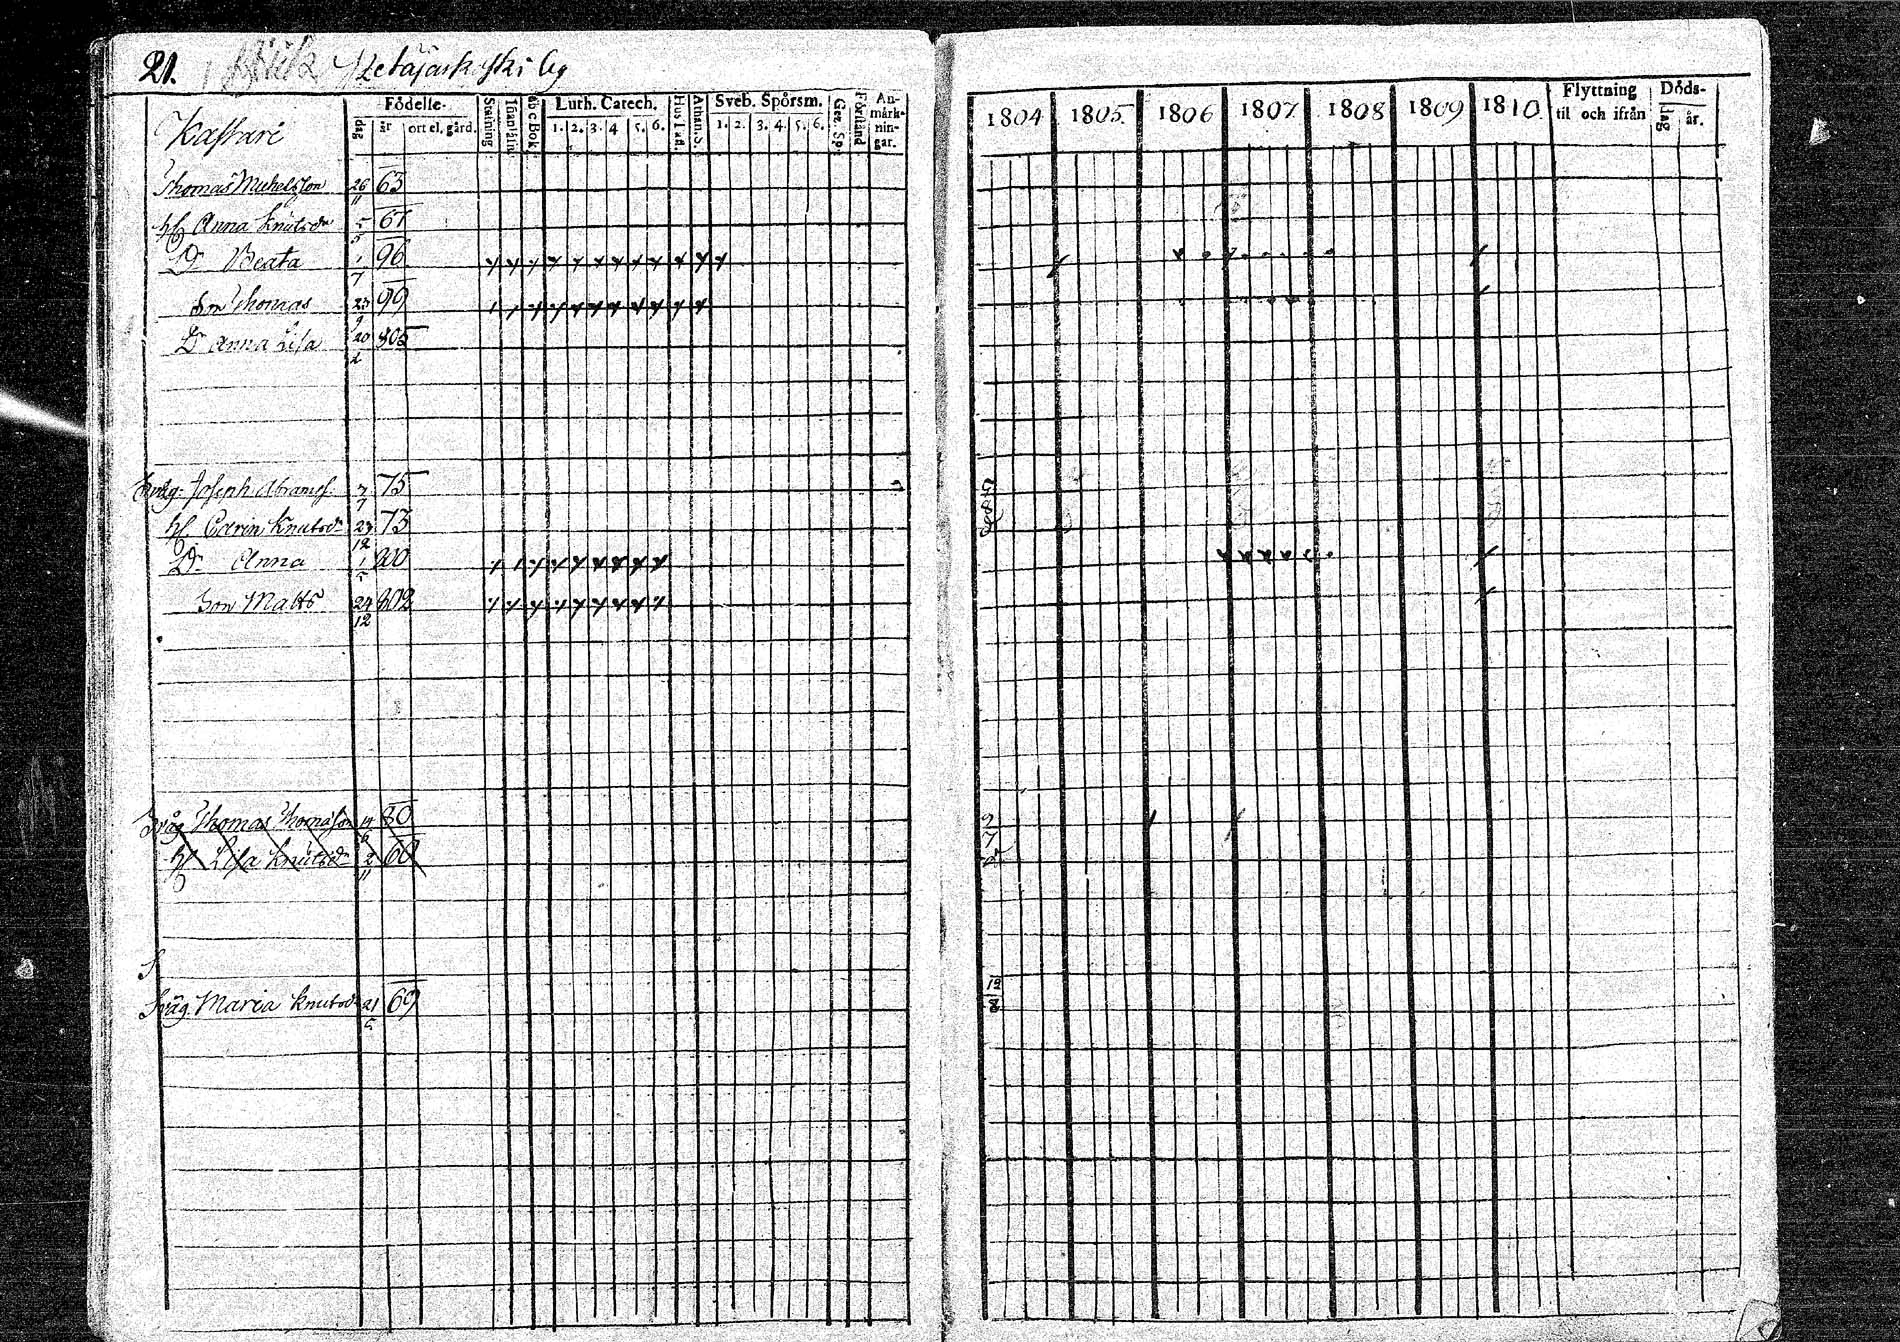 21. Petäjäskoski by
Födelse-
Stafning
Luth. Catech.
Sveb. Spörsm.
An-märk-nin-gar.
dag år ort el. gård. Innanläsn. abc Bok. 1. 2. 3. 4 5. 6. Hus Tafl. Athan. S. 1. 2. 3. 4. 5. 6. Gez. Sp. Förstånd
Kaffari
Thomas Michelsson 26/11 63
h. Anna Knutsdr 5/5 67
Dr Beata 1/7 96
Son Thomas 23/9 99
Dr Anna Lisa 20/2 805
Svåg. Joseph Abramss. 7/7 75
h. Carin Knutsdr 23/12 73
Dr Anna 1/5 800
Son Matts 24/12 802
Svåg Thomas Thomasson 14/6 80
h. Lisa Knutsdr 2/11 60
Svåg. Maria Knutsdr 21/5 69
1804 1805. 1806 1807 1808 1809 1810
Flyttning
til och ifrån
Döds-
dag år.
9
7
12
8